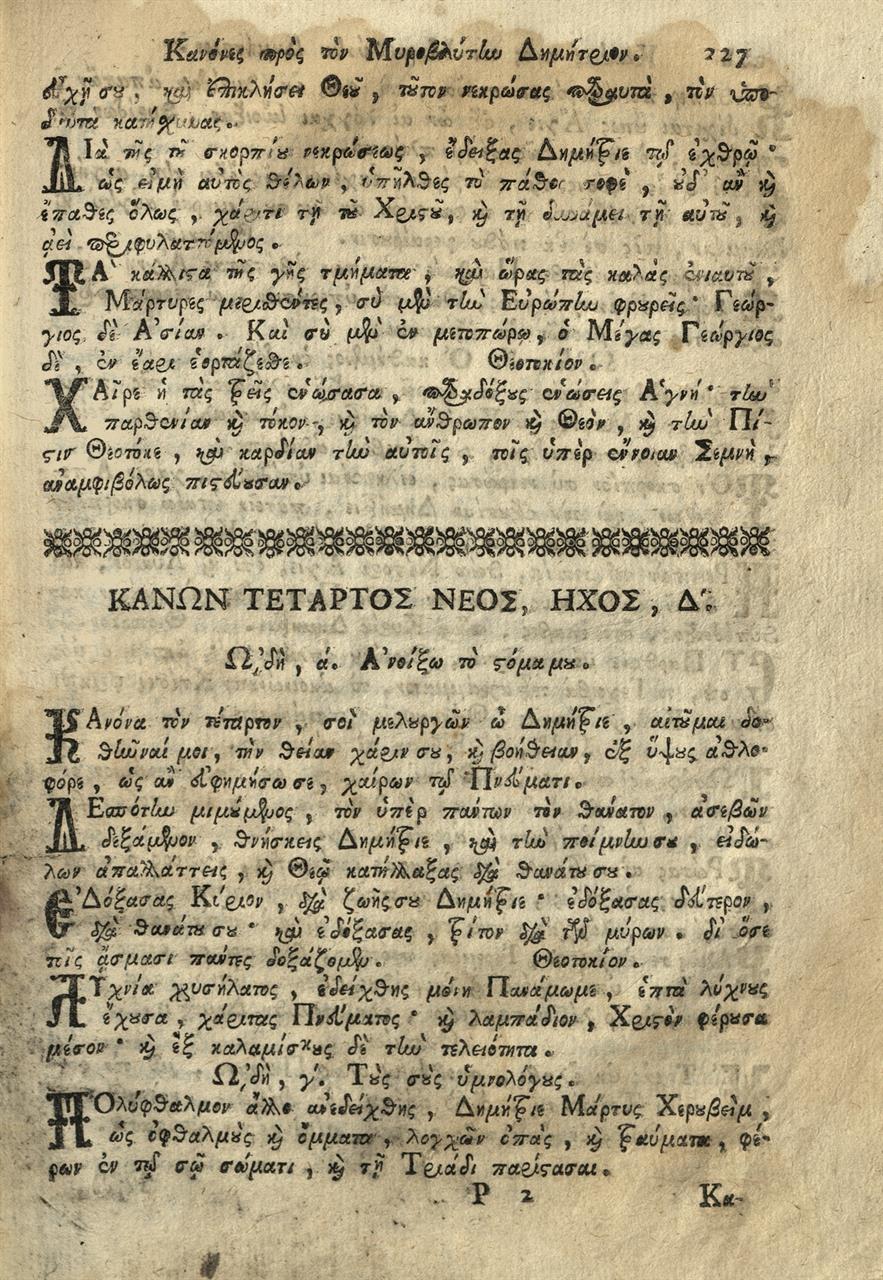 Κανόνες πρὸς τὸν Μυροβλύτην Δημήτριον. 227
εὐχῇ σου, καὶ ἐπικλήσει Θεοῦ, τοῦτον νεκρώσας παραυτὰ, τὸν
κατῄσχυνας.
ΔΙὰ τῆς τοῦ σκορπίου νεκρώσεως, ἔδειξας Δημήτριε τῷ ἐχθρῷ·
ὡς εἰμὴ αὐτὸς θέλων, ὑπῆλθες τὸ πάθος ποτὲ, οὐδ' ἂν καὶ
ἔπαθες ὅλως, χάριτι τῇ τοῦ Χριστοῦ, καὶ τῇ δυνάμει τῇ αὐτοῦ, καὶ
ἀεὶ περιφυλαττόμενος.
ΤΑ' κάλλιστα τῆς γῆς τμήματα, καὶ ὥρας τὰς καλὰς ἐνιαυτοῦ,
Μάρτυρες μερισθέντες, σὺ μὲν τὴν Εὐρώπην φρουρεῖς· Γεώρ-
γιος δὲ Ἀσίαν. Καὶ σὺ μὲν ἐν μετοπώρῳ, ὁ Μέγας Γεώργιος
δὲ, ἐν ἔαρι ἑορτάζεσθε. Θεοτοκίον.
ΧΑῖρε ἡ τὰς τρεῖς ἑνώσασα, παραδόξους ἑνώσεις Ἁγνή· τὴν
παρθενίαν καὶ τόκον, καὶ τὸν ἄνθρωπον καὶ Θεὸν, καὶ τὴν Πί-
στιν Θεοτόκε, καὶ καρδίαν τὴν αὐτοῖς, τοῖς ὑπὲρ ἔννοιαν Σεμνὴ,
ἀναμφιβόλως πιστεύουσαν.
ΚΑΝΩΝ ΤΕΤΑΡΤΟΣ ΝΕΟΣ, ΗΧΟΣ, Δ'.
ᾨδὴ, ά. Ἀνοίξω τὸ στόμα μου.
ΚΑνόνα τὸν τέταρτον, σοὶ μελουργῶν ὦ Δημήτριε, αἰτοῦμαι δο-
θῆναί μοι, τὴν θείαν χάριν σου, καὶ βοήθειαν, ἐξ ὕψους ἀθλο-
φόρε, ὡς ἂν εὐφημήσω σε, χαίρων τῷ Πνεύματι.
ΔΕσπότην μιμούμενος, τὸν ὑπὲρ πάντων τὸν θάνατον, ἀσεβῶν
δεξάμενον, θνήσκεις Δημήτριε, καὶ τὴν ποίμνην σου, εἰδώ-
λων ἀπαλλάττεις, καὶ Θεῷ κατήλλαξας διὰ θανάτου σου.
Ε'Δόξασας Κύριον, διὰ ζωῆς σου Δημήτριε· ἐδόξασας δεύτερον,
διὰ θανάτου σου· καὶ ἐδόξασας, τρίτον διὰ τῶν μύρων. δι' ὅ σε
πῖς ᾄσμασι πάντες δοξάζομεν. Θεοτοκίον.
ΛΥχνία χρυσήλατος, ἐδείχθης μόνη Πανάμωμε, ἑπτὰ λύχνους
ἔχουσα, χάριτας Πνεύματος· καὶ λαμπάδιον, Χριστὸν φέρουσα
μέσον· καὶ ἐξ καλαμίσκους δὲ τὴν τελειότητα.
ᾨδὴ, γ'. Τοὺς σοὺς ὑμνολόγους.
ΠΟλυόφθαλμον ἄλλο ἀνεδείχθης, Δημήτριε Μάρτυς Χερουβεὶμ,
ὡς ὀφθαλμοὺς καὶ ὄμματα, λογχῶν ὀπὰς, καὶ τραύματα, φέ-
ρων ἐν τῷ σῷ σώματι, καὶ τῇ Τριάδι παρίστασαι.
P 2 Κα-